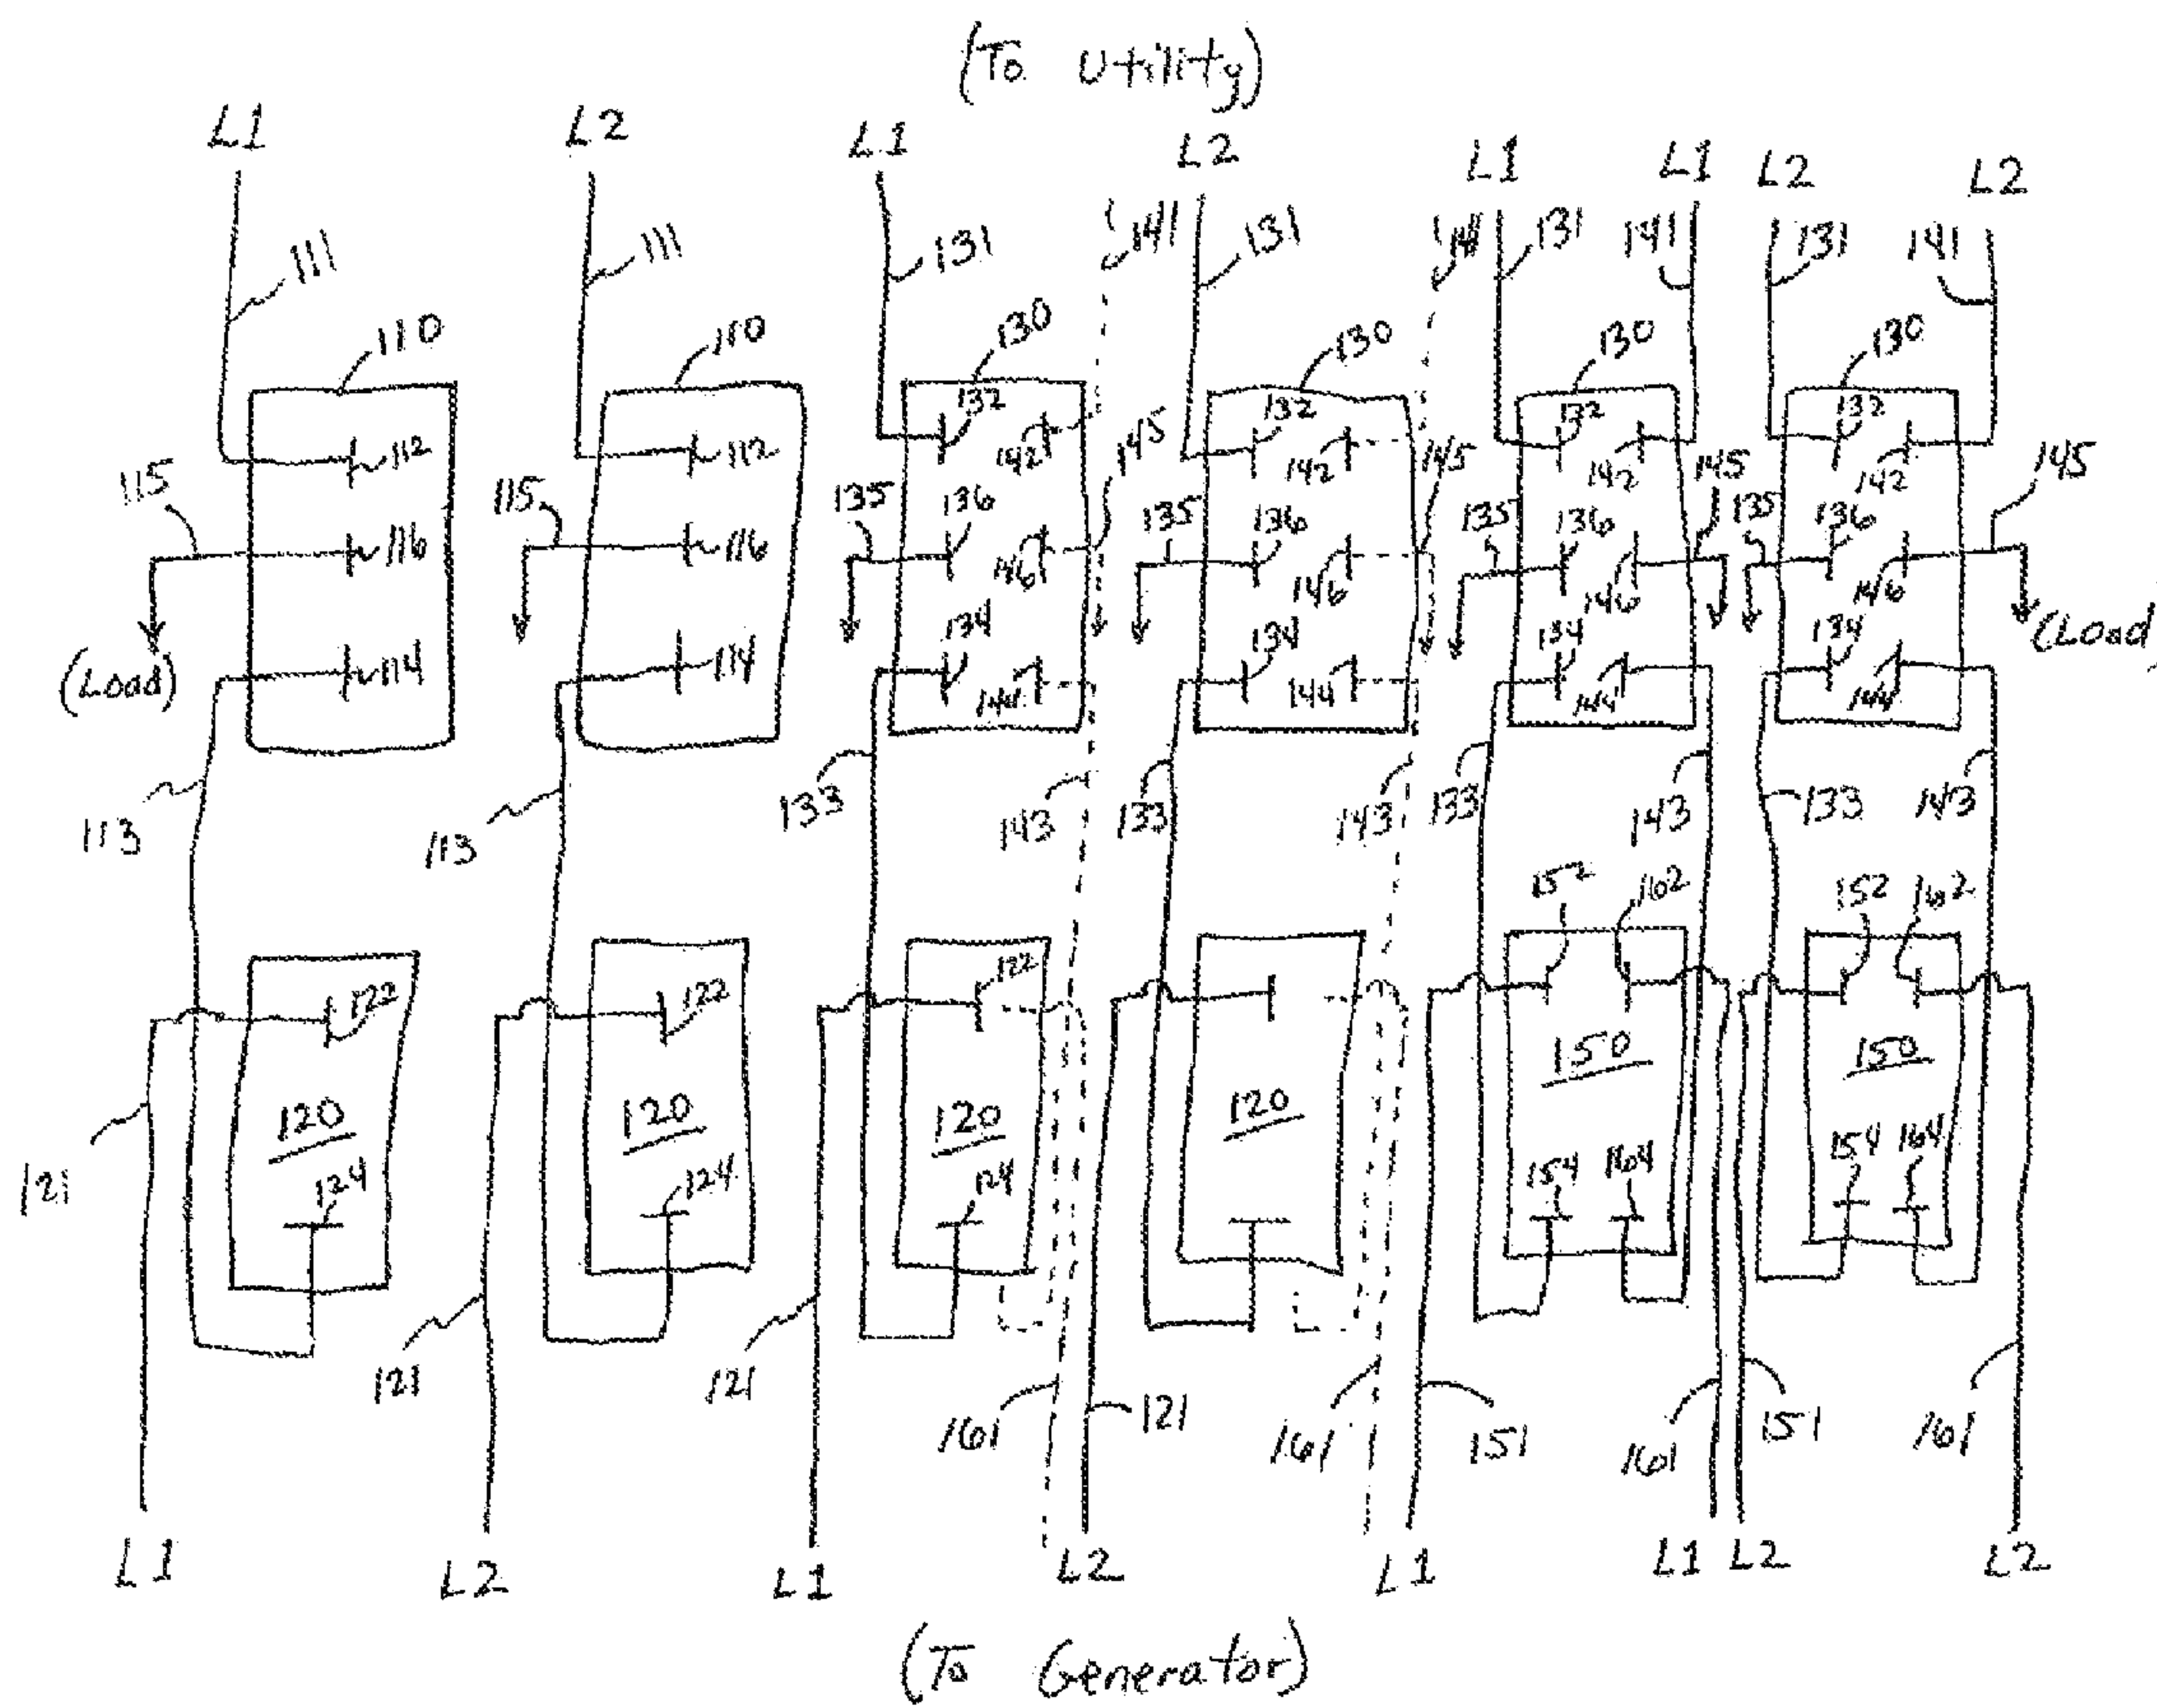 (To Utility)
L1 L2 L1 L2 L1 L1 L2 L2
111 111 131 141 131 141 131 141 131 141
110 110 130 130 130 130
132 132 132 132
112 112 142 142 142 142
115 115 135 145 135 145 135 145 135 145
136 136 136 136
116 116 146 146 146 146
134 134 134 134
(Load) 114 114 144 144 144 144 (Load)
113 113 133 143 133 143 133 143 133 143
152 162 152 162
122 122 122
150 150
120 120 120 120
124 124 124 154 164 154 164
121 121 121 161 121 161 151 161 151 161
L1 L2 L1 L2 L1 L1 L2 L2
(To Generator)